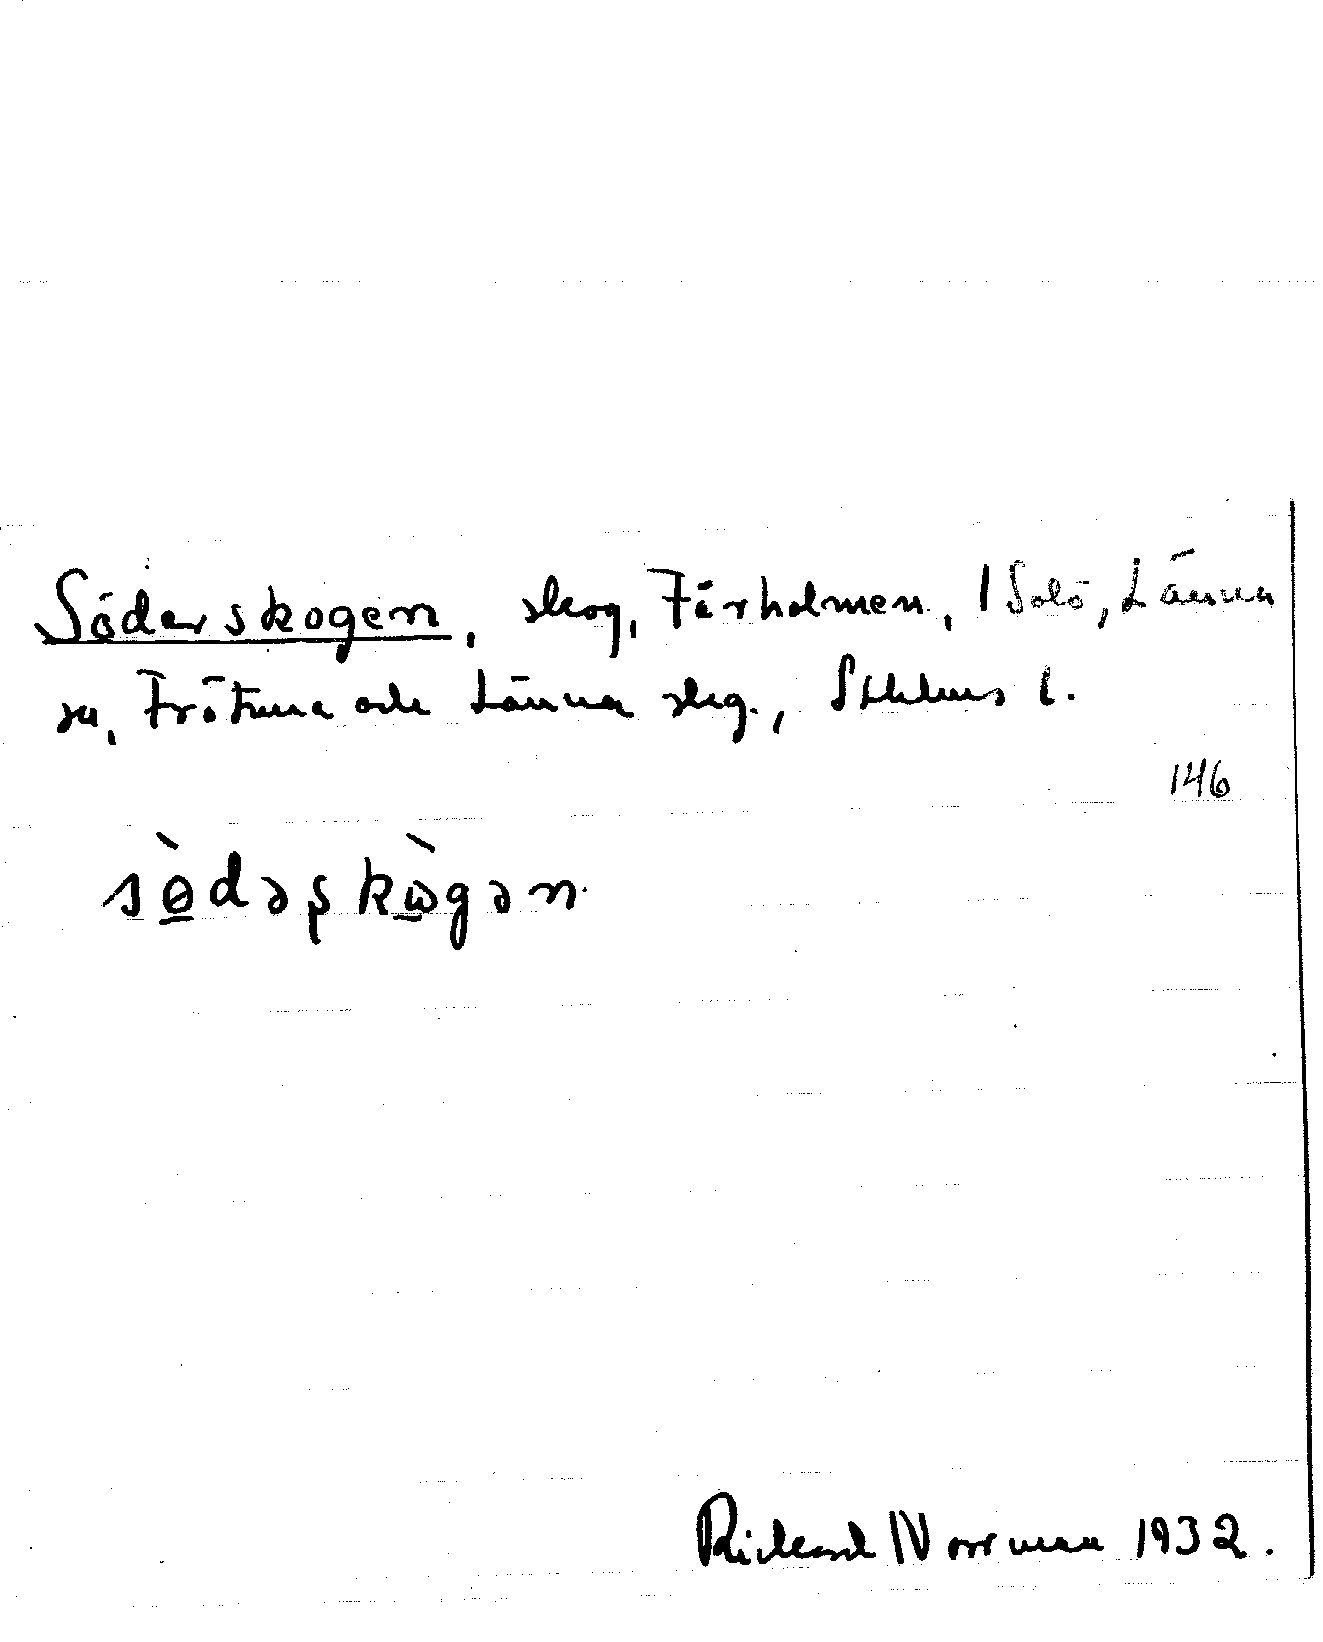 Söderskogen, skog, Fårholmen, 1 Solö, Länna
sn, Frötuna och Länna skg., Sthlms l.
146
sɵ̀dəʂkὼgən
Rickard Norrman 1932.